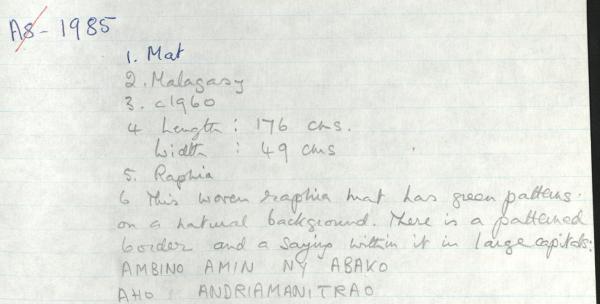 A8 - 1985
1. Mat
2. Malagasy
3. c1960
4 Length : 176 cms.
Width : 49 cms
5. Raphia
6 This woven raphia mat has green patterns
on a natural background. There is a patterned
border and a saying within it in large capitals:
AMBINO AMIN NY ABAKO
AHO ANDRIAMANITRAO